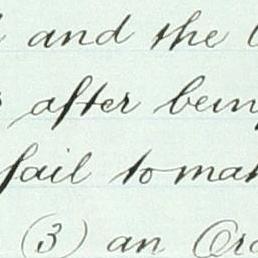 and the
after bein
fail to mak
(3) an Ord